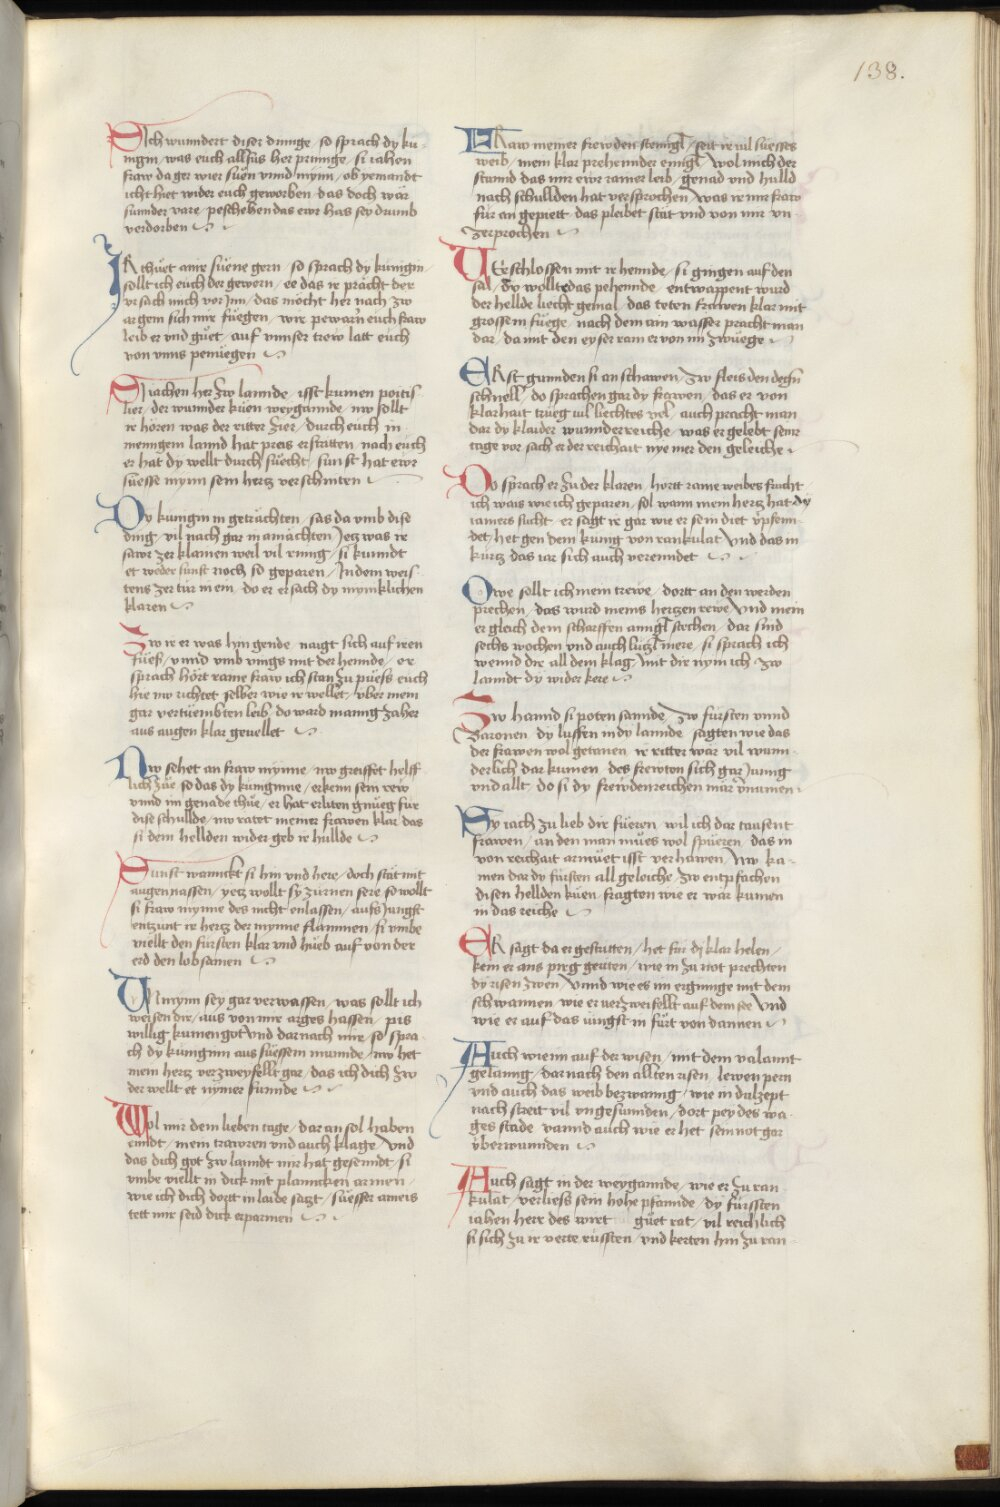 138.
Sich wundert diser dinnge so sprach dy ku-
nigin / was euch allsus her prinnge / si iahen
fraw da ger wier süen vnnd mynn / ob yemandt
icht hiet wider euch geworben das doch wär
sunnder vare / peschehen das ewr has sey darumb
verdorben
IR thüet amr süene gern / so sprach dy künigin
sollt ich euch der gewern / ee das ir prächt der
vrsach mich vor Inn / das möcht her nach zw
argem sich mir füegen / wir pewarn euch fraw
leib er vnd güet / auf vnnser trew latt euch
von vnns penüegen
Si iachen her zw lannde / isst kumen poitis-
lier / der wunnder küen weygannde / nw sollt
ir hören was der ritter zier / durch euch in
mennigem lannd hat preis erstritten / nach euch
er hat dy wellt durch süecht / sunst hat ewr
süesse mynn sein hertz verschniten
Dy künigin in geträchten / sas da vmb dise
ding / vil nach gar in amächten / Jetz was ir
sawr zer klainen weil vil ring / si kunndt
et weder sunst noch so geparen / Indem weis-
tens zer tür in ein / do er ersach dy mynniklichen
klaren
Zw ir er was hin gende / naigt sich auf iren
füeß / vnnd vmb vings mit der hennde / er
sprach hört raine fraw ich stan zu püess euch
hie nw richtet selber wie ir wellet / vber mein
gar vertüembten leib / do ward manng zaher
aus augen klar geuellet
Nw sehet an fraw mynne / nw greiffet helff-
lich züe so das dy küniginne / erkenn sein rew
vnnd im genade thüe / er hat erliten gnüeg für
dise schullde / nw ratet meiner frawen klar das
si dem hellden wider geb ir hullde
Sunst wannckt si hin vnd here / doch stät mit
augen nassen / yetz wollt sy zürnen sere so wollt
si fraw mynne des nicht enlassen / aufs Jungst
entzunt ir hertz der mynne flammen / si vmbe
viellt den fürsten klar vnd hüeb auf von der
erd den lobsamen
Vnmynn sey gar verwassen / was sollt ich
weisen dir / aus von mir arges hassen / pis
willig kumen got vnd darnach mir / so spra-
ch dy künginn aus süessem munnde / nw het
mein hertz verzweyfellt gar / das ich dich zw
der wellt et nymer funnde
Wol mir dem lieben tage / dar an sol haben
enndt / mein trawren vnd auch klage / Vnd
das dich got zw lanndt mir hat gesenndt / si
vmbe viellt in dick mit planncken armen /
wie ich dich dortt in laide sagt / süesser ameis
tett mir seid dick erparmen
FRaw meiner frewden stennigl / seit ir vil süesses
weib / mein klar prehennder ennigl / Wol mich der
stunnd das mir ewr rainer leib / genad vnd hulld
nach schullden hat versprochen / Was ir mir fraw
für an gepiett / das pleibet stät vnd von mir vn-
zerprochen
VErschlossen mit ir hennde / si gingen auf den
sal / Sy wollt das pehennde / entwappent wurd
der hellde liecht gemal / das teten frawen klar mit
grossem füege / nach dem ain wasser pracht man
dar / da mit den eyser ram er von im zwüege
ERst gunnden si an schawen / Zw fleis den degn
schnell / do sprachen gar dy frawen / das er von
klarhait trüeg vil liechtes vel / auch pracht man
dar dy klaider wunnderreiche / was er gelebt seinr
tage vor sach er der reichait nye mer den geleiche
Do sprach er zu der klaren / hortt raine weibes frucht
ich wais wie ich geparen / sol wann mein hertz hat dy
iamers sucht / er sagt ir gar wie er sein diet verpfenn-
det / het gen dem kung von rankulat / Vnd das in
kürtz das iar sich auch verenndet
Owe sollt ich mein trewe / dortt an den werden
prechen / das wurd meins hertzen rewe / Vnd mein
er gleich dem scharffen anngl stechen / dar sind
sechs wochen vnd auch lützl mere / si sprach ich
wennd dir all dein klag / mit dir nym ich zw
lanndt dy wider kere
Zw hannd si poten sannde / Zw fürsten vnnd
Baronen / dy lussen in dy lannde / sagten wie das
der frawen wol getanen / ir ritter wär vil wunn-
derlich dar kumen / des frewton sich gar Junng
vnd allt / do si dy frewdenreichen mär vernumen
Sy iach zu lieb dir füeren / wil ich dar tausent
frawen / an den man müeß wol spüeren / das in
von reichait armüet isst verhawen / Nw ka-
men dar dy fürsten all geleiche / Zw entpfachen
disen hellden küen / fragten wie er wär kumen
in das reiche
ER sagt da er gestritten / het für dy klar helen /
kem er ans pirg geriten / wie in zu not prechten
dy risen zwen / Vnnd wie es im erginnge mit dem
schwannen / wie er verzweifellt auf dem see / Vnd
wie er auf das iüngst in fürt von dannen
Auch wie im auf der wisen / mit dem valannt
gelanng / dar nach den allten risen / lewen pern
vnd auch das weib bezwanng / wie in dulzept
nach streit vil vngesunnden / dort pey des wa-
ges stade vannd auch wie er het sein not gar
vberwunnden
Auch sagt in der weygannde / wie er zu ran-
kulat / verließ sein hohe pfannde / dy fürssten
iahen herr des wirt güet rat / vil reichlich
si sich zu ir verte rüssten / vnd kerten hin zu ran-